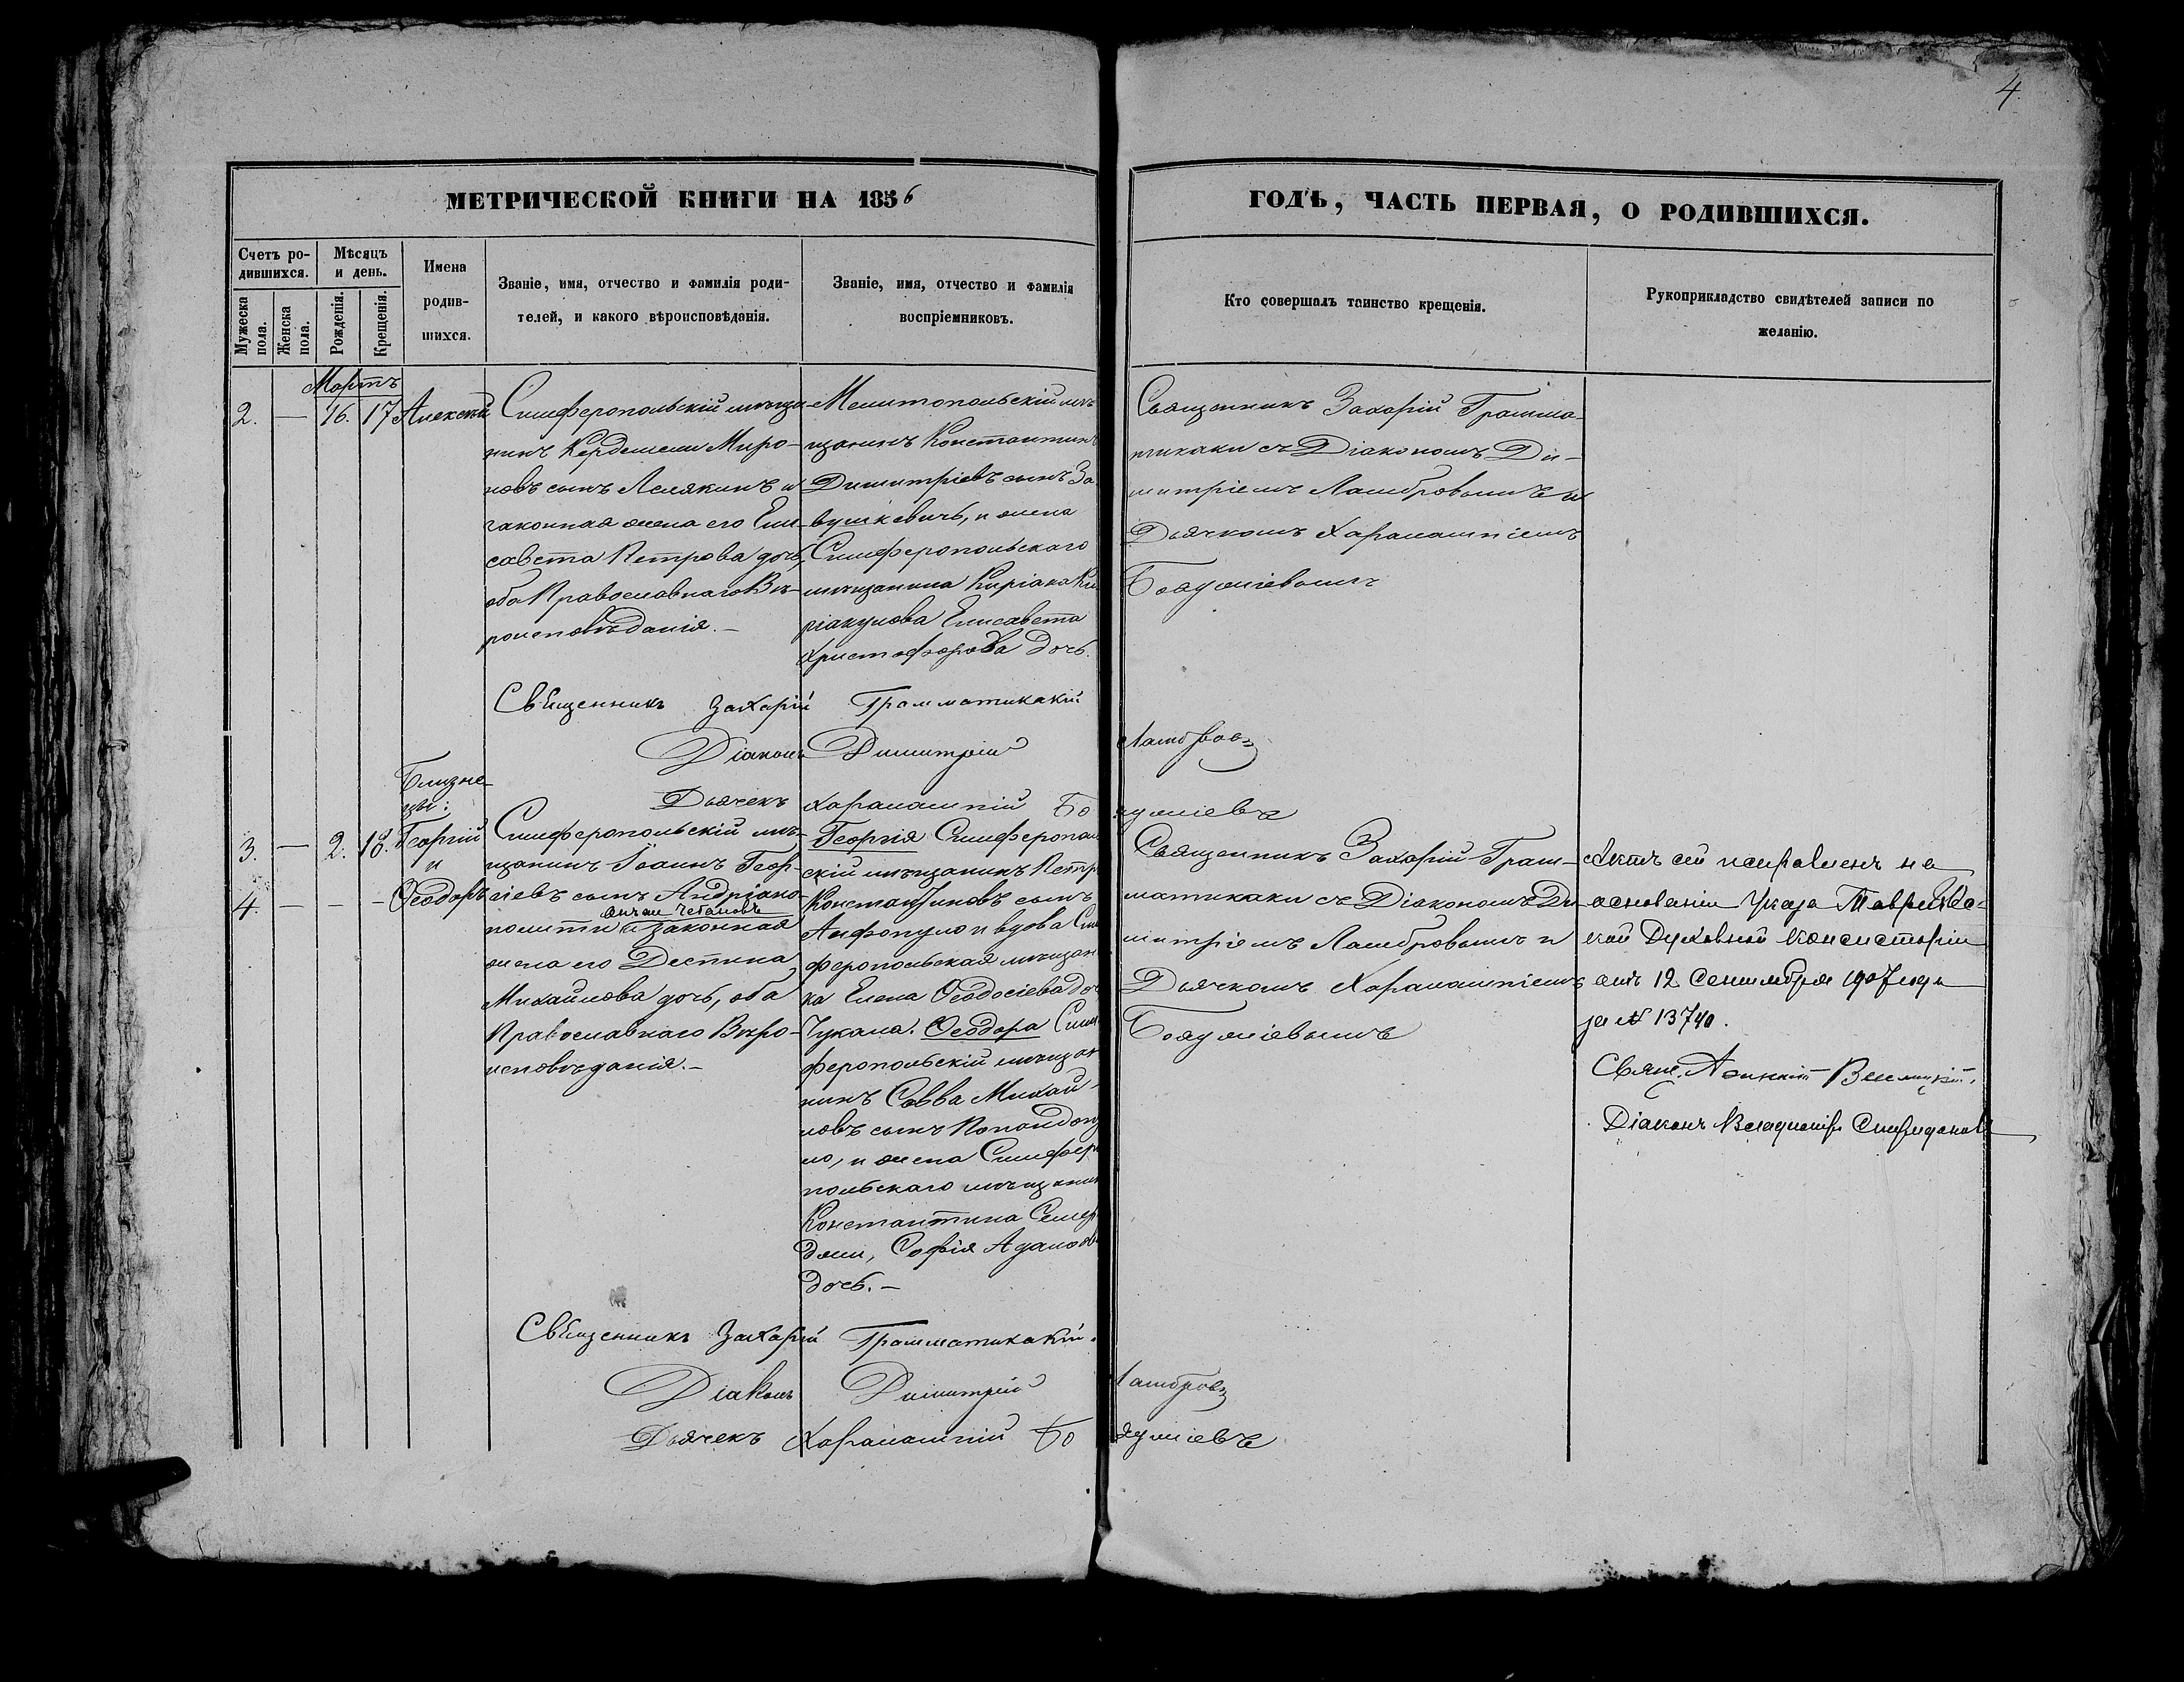 4
МЕТРИЧЕСКОЙ КНИГИ НА 1856
ГОДЪ, ЧАСТЬ ПЕРВАЯ, О РОДИВШИХСЯ.
Счетъ ро-
дившихся.
Мужеска пола.
Женска пола.
Мѣсяцъ
и день.
Рожденія.
Крещенія.
Имена
родив-
шихся.
Званіе, имя, отчество и фамилія роди-
телей, и какого вѣроисповѣданія.
Званіе, имя, отчество и фамилія
воспріемниковъ.
Кто совершалъ таинство крещенія.
Рукоприкладство свидѣтелей записи по
желанію.
Мартъ
2. — 16. 17 Алексѣй
Симферопольскій мѣща-
нинъ Миро-
новъ сынъ и
законная жена его Ели-
савета Петрова дочь,
оба Православнаго Вѣ-
роисповѣданія. —
Мелитопольскій мѣ-
щанинъ Константинъ
Димитріевъ сынъ За-
вушкевичъ, и жена
Симферопольскаго
мѣщанина Киріака Ки-
ріакулова Елисавета
Христофорова дочь.
Священникъ Захарій Грамма-
тикаки съ Діакономъ Ди-
митріемъ Ламбровымъ и
Дьячкомъ Харалампіемъ
Бояджіевымъ
Священникъ Захарій Грамматикакій
Діаконъ Димитрій Ламбровъ
Дьячекъ Харалампій Бояджіевъ
Близне-
цы:
3. — 2. 18. Георгій
и
4. — — — Ѳеодоръ
Симферопольскій мѣ-
щанинъ Іоаннъ Геор-
гіевъ сынъ Андріано-
онъ же Чебановъ
полити и законная
жена его Деспина
Михайлова дочь, оба
Православнаго Вѣро-
исповѣданія. —
Георгія Симферополь-
скій мѣщанинъ Петръ
Константиновъ сынъ
Анфопуло и вдова Сим-
феропольская мѣщан-
ка Елена Ѳеодосіева дочь
Чукала. Ѳеодора Сим-
феропольскій мѣща-
нинъ Савва Михай-
ловъ сынъ Попандопу-
ло, и жена Симферо-
польскаго мѣщанина
Константина
Софія Адамова
дочь. —
Священникъ Захарій Грам-
матикаки съ Діакономъ Ди-
митріемъ Ламбровымъ и
Дьячкомъ Харалампіемъ
Бояджіевымъ
Актъ сей исправленъ на
основаніи Указа Тавричес-
кой Духовной Консисторіи
отъ 12 Сентября 1907 года
за № 13740.
Свящ.
Діаконъ Владиміръ Спиридоновъ
Священникъ Захарій Грамматикакій.
Діаконъ Димитрій Ламбровъ
Дьячекъ Харалампій Бояджіевъ